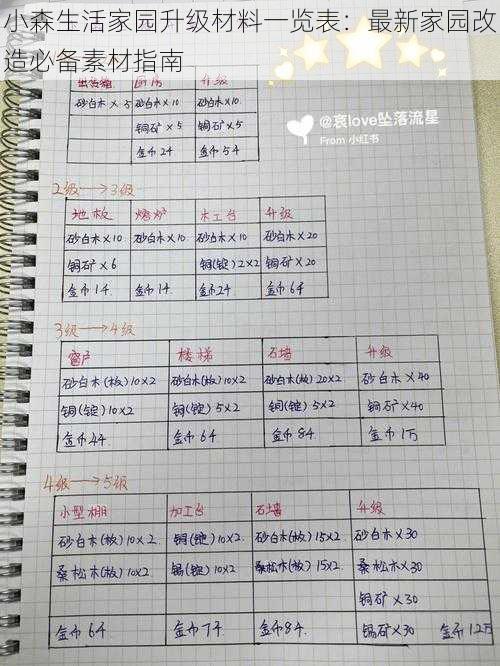 小森生活家园升级材料一览表：最新家园改
造必备素材指南
@哀love坠落流星
From 小红书
出货箱 厨房 升级
砂白木×5 砂白木×10 砂白木×10
铜矿×5 铜矿×5
金币24 金币54
2级→3级
地板 烤炉 木工台 升级
砂白木×10 砂白木×10 砂白木×10 砂白木×20
铜矿×6 铜(锭)2×2 铜矿×20
金币14 金币14 金币24 金币64
3级→4级
窗户 楼梯 石墙 升级
砂白木(板)10×2 砂白木(板)10×2 砂白木(板)20×2 砂白木×40
铜(锭)10×2 铜(锭)5×2 铜(锭)5×2 铜矿×40
金币44 金币64 金币84 金币1万
4级→5级
小型棚 加工台 石墙 升级
砂白木(板)10×2 铜(锭)10×2 砂白木(板)15×2 砂白木×30
桑松木(板)10×2 锡(锭)10×2 桑松木(板)15×2 桑松木×30
铜矿×30
金币64 金币74 金币84 锡矿×30 金币1.2万